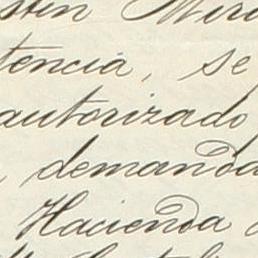 stin Mira
tencia, se
autorizado
demanda
Hacienda